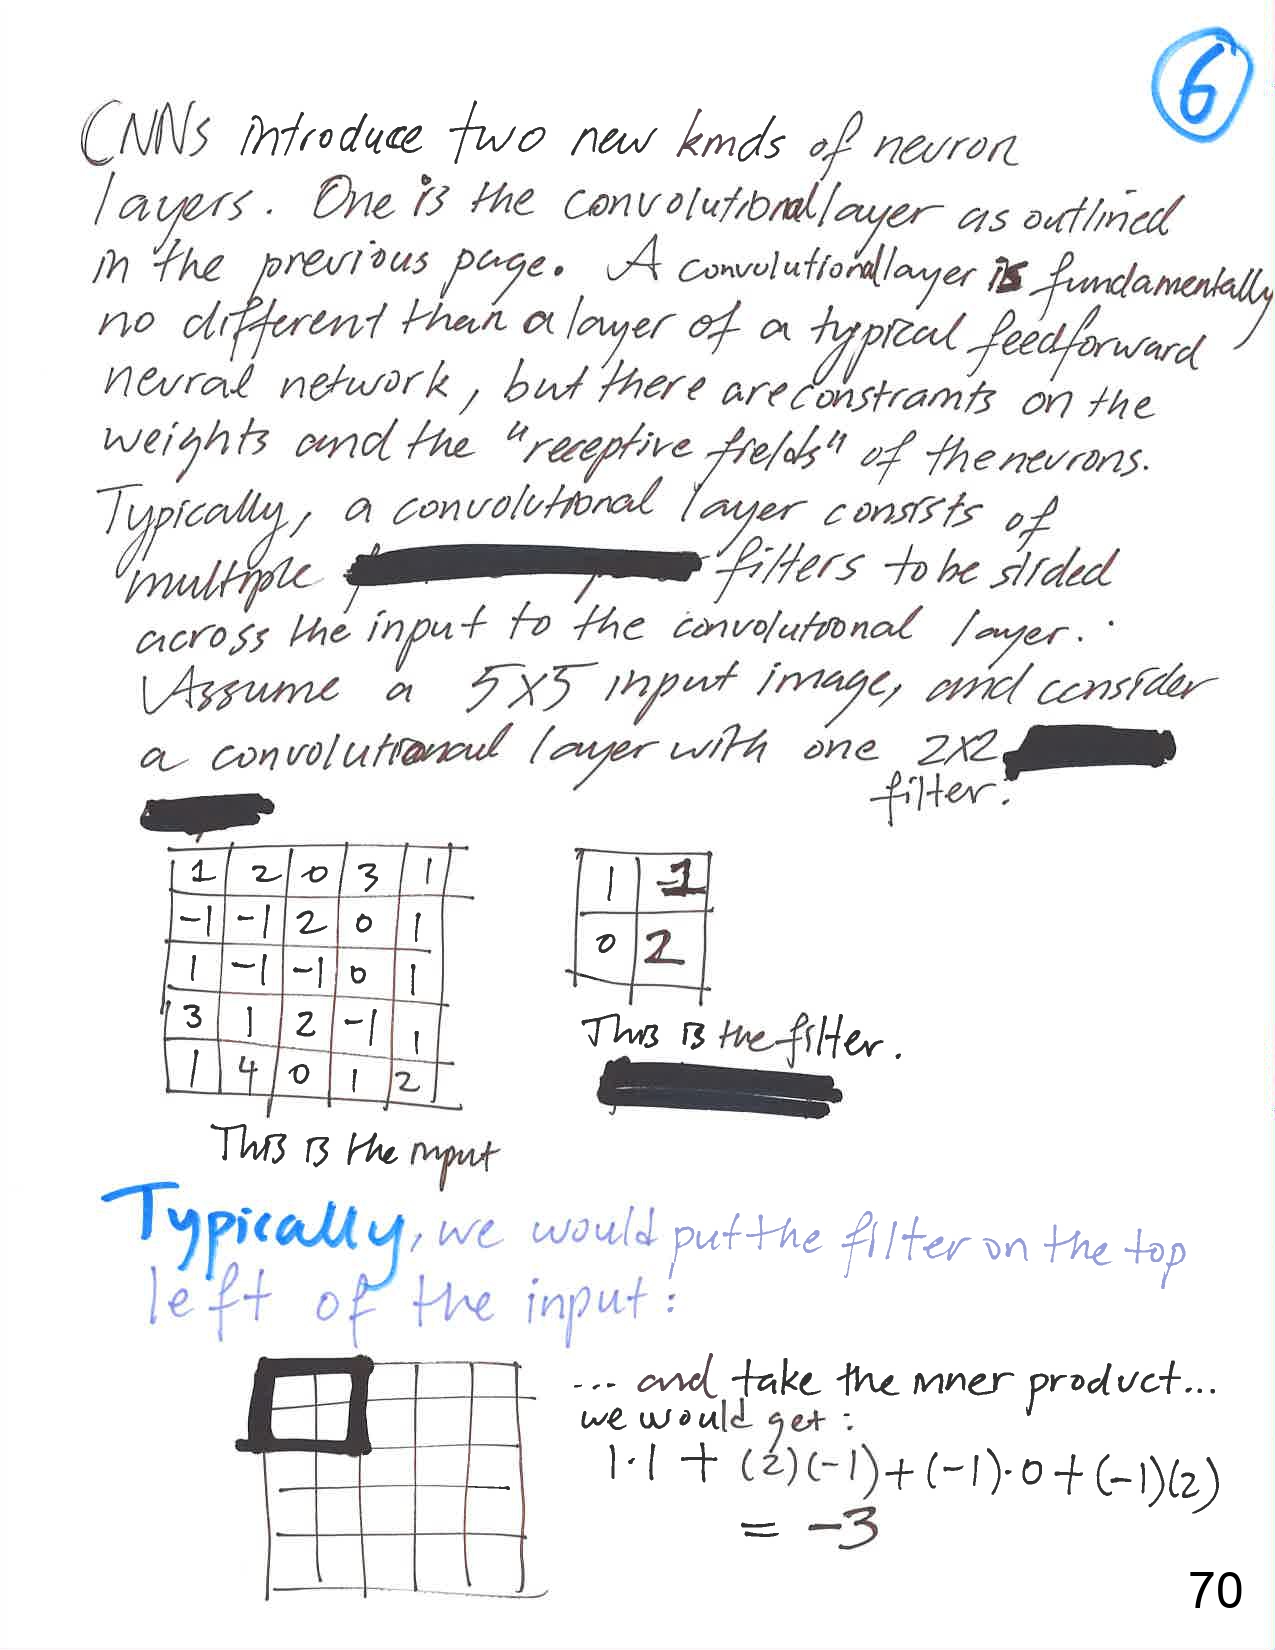 6
CNNs introduce two new kinds of neuron
layers. One is the convolutional layer as outlined
in the previous page. A convolutional layer is fundamentally
no different than a layer of a typical feedforward
neural network, but there are constraints on the
weights and the "receptive fields" of the neurons.
Typically, a convolutional layer consists of
multiple filters to be slided
across the input to the convolutional layer.
Assume a 5x5 input image, and consider
a convolutional layer with one 2x2
filter.
1 2 0 3 1
-1 -1 2 0 1
1 -1 -1 0 1
3 1 2 -1 1
1 4 0 1 2
This is the input
1 -1
0 2
This is the filter.
Typically, we would put the filter on the top
left of the input:
... and take the inner product...
we would get:
1·1 + (2)(-1) + (-1)·0 + (-1)(2)
= -3
70